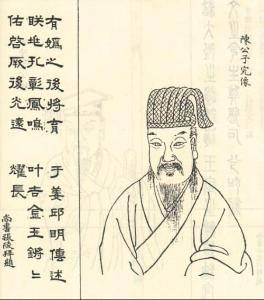 陳公子完像
有嬀之後將育于姜邱明傳述
眹垂孔彰鳳鳴叶吉金玉鏘〻
佑啓厥後光遠耀長
尚書張陵拜題